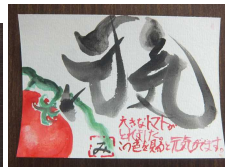 元気
大きなトマトが
とれました。
この色を見ると元気がでます。
み